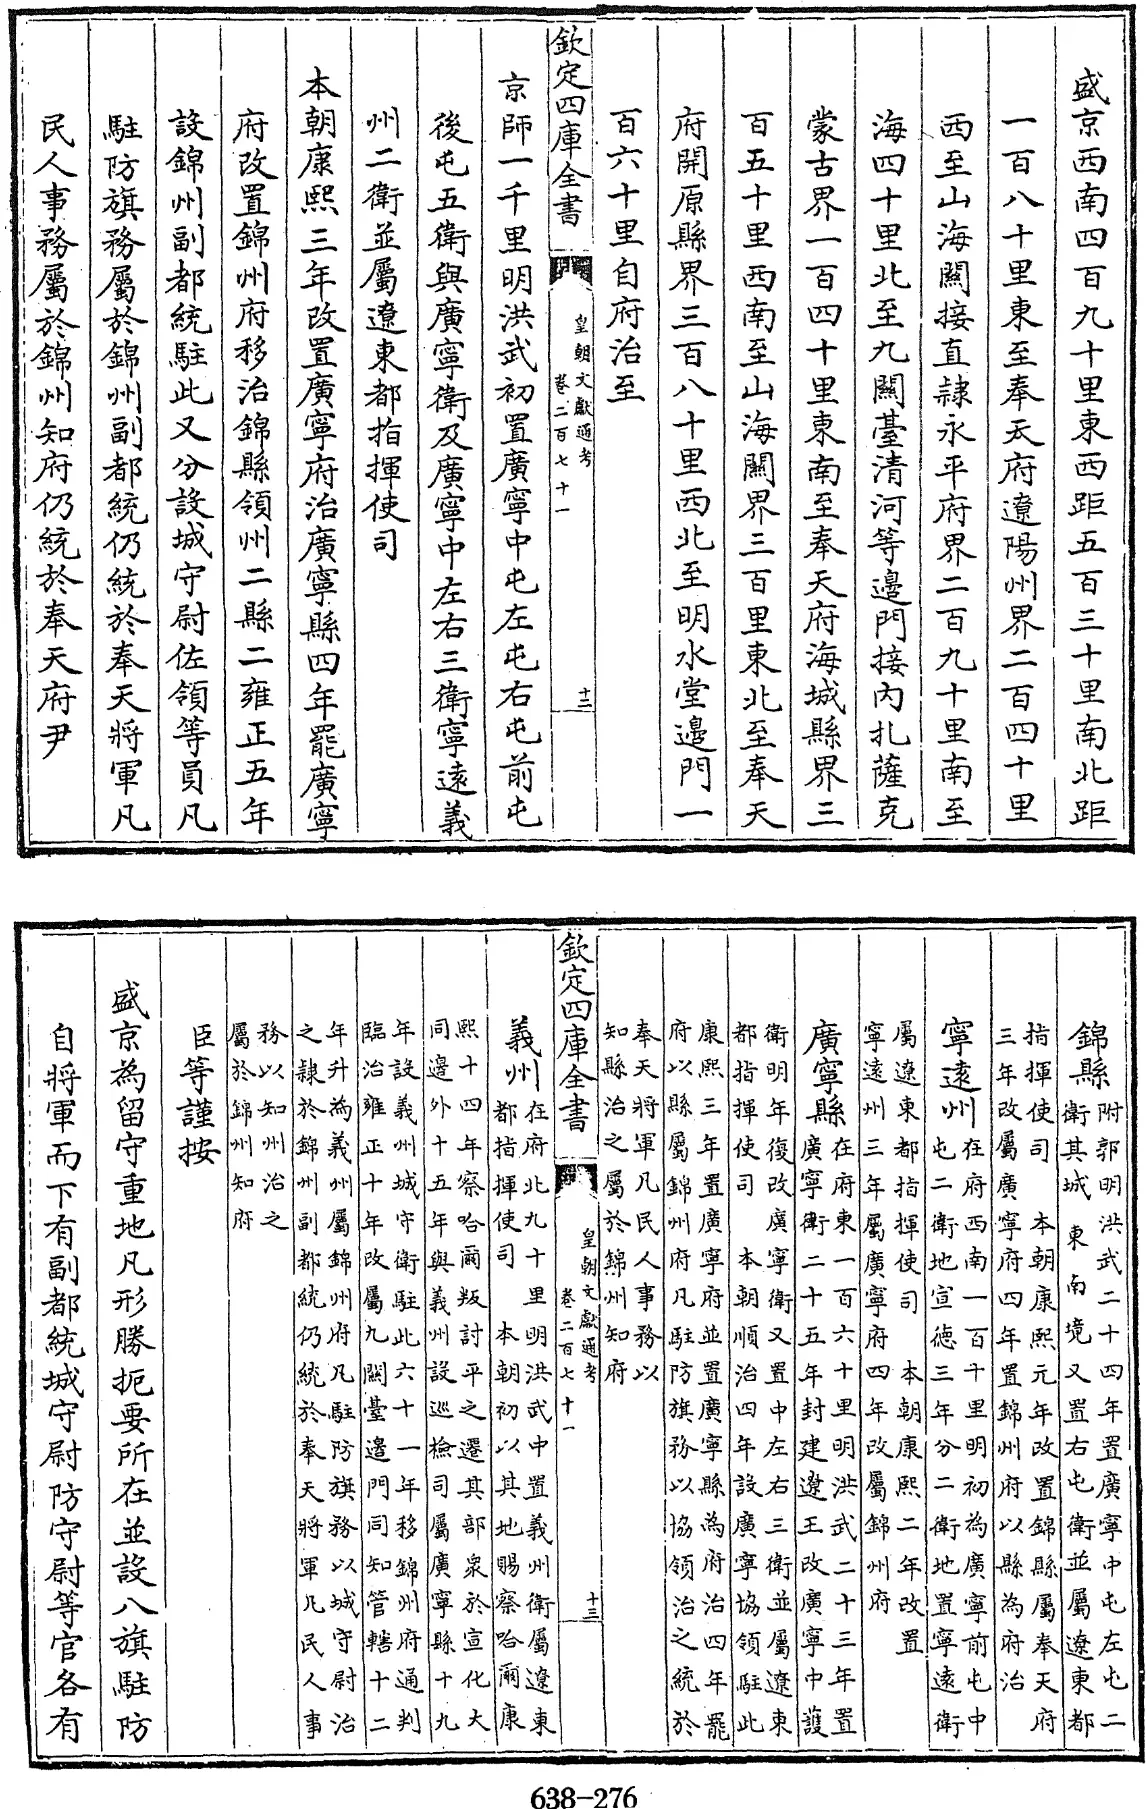 盛京西南四百九十里東西距五百三十里南北距
一百八十里東至奉天府遼陽州界二百四十里
西至山海關接直隸永平府界二百九十里南至
海四十里北至九關臺清河等邊門接內扎薩克
蒙古界一百四十里東南至奉天府海城縣界三
百五十里西南至山海關界三百里東北至奉天
府開原縣界三百八十里西北至明水堂邊門一
百六十里自府治至
欽定四庫全書
皇朝文獻通考
卷二百七十一
十二
京師一千里明洪武初置廣寧中屯左屯右屯前屯
後屯五衛與廣寧衛及廣寧中左右三衛寧遠義
州二衛並屬遼東都指揮使司
本朝康熙三年改置廣寧府治廣寧縣四年罷廣寧
府改置錦州府移治錦縣領州二縣二雍正五年
設錦州副都統駐此又分設城守尉佐領等員凡
駐防旗務屬於錦州副都統仍統於奉天將軍凡
民人事務屬於錦州知府仍統於奉天府尹
錦縣
附郭明洪武二十四年置廣寧中屯左屯二
衛其城東南境又置右屯衛並屬遼東都
指揮使司 本朝康熙元年改置錦縣屬奉天府
三年改屬廣寧府四年置錦州府以縣為府治
寧遠州
在府西南一百十里明初為廣寧前屯中
屯二衛地宣德三年分二衛地置寧遠衛
屬遼東都指揮使司 本朝康熙二年改置
寧遠州三年屬廣寧府四年改屬錦州府
廣寧縣
在府東一百六十里明洪武二十三年置
廣寧衛二十五年封建遼王改廣寧中護
衛明年復改廣寧衛又置中左右三衛並屬遼東
都指揮使司 本朝順治四年設廣寧協領駐此
康熙三年置廣寧府並置廣寧縣為府治四年罷
府以縣屬錦州府凡駐防旗務以協領治之統於
奉天將軍凡民人事務以
知縣治之屬於錦州知府
欽定四庫全書
皇朝文獻通考
卷二百七十一
十三
義州
在府北九十里明洪武中置義州衛屬遼東
都指揮使司 本朝初以其地賜察哈爾康
熙十四年察哈爾叛討平之遷其部衆於宣化大
同邊外十五年與義州設巡檢司屬廣寧縣十九
年設義州城守衛駐此六十一年移錦州府通判
臨治雍正十年改屬九關臺邊門同知管轄十二
年升為義州屬錦州府凡駐防旗務以城守尉治
之隸於錦州副都統仍統於奉天將軍凡民人事
務以知州治之
屬於錦州知府
臣等謹按
盛京為留守重地凡形勝扼要所在並設八旗駐防
自將軍而下有副都統城守尉防守尉等官各有
638-276